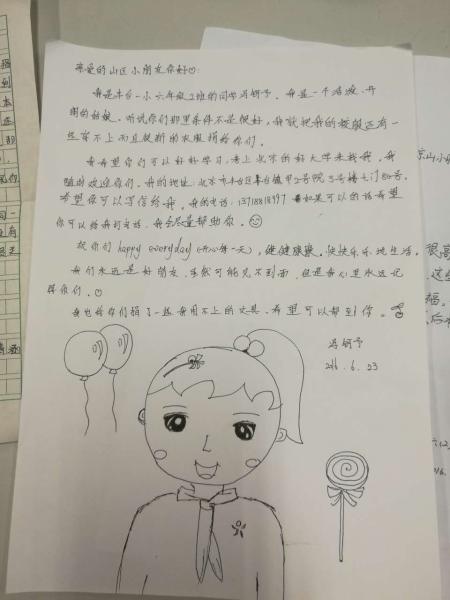 亲爱的山区小朋友你好☺:
我是丰台一小六年级2班的同学冯钶予。我是一个活泼、开
朗的姑娘。听说你们那里条件不是很好,我就把我的校服还有一
些穿不上而且较新的衣服捐给你们。
我希望你们可以好好学习,考上北京的好大学来找我。我
随时欢迎你们。我的地址:北京市丰台区
希望你可以写信给我。我的电话:13718818997 如果可以的话希望
你可以给我打电话,我会尽量帮助你。☺
祝你们happy everyday(开心每一天),健健康康、快快乐乐地生活。
我们永远是好朋友,虽然可能见不到面,但是我心里永远记
得你们。
我也给你们捐了一些我用不上的文具,希望可以帮到你。
2016.6.23
很高
这些
福。